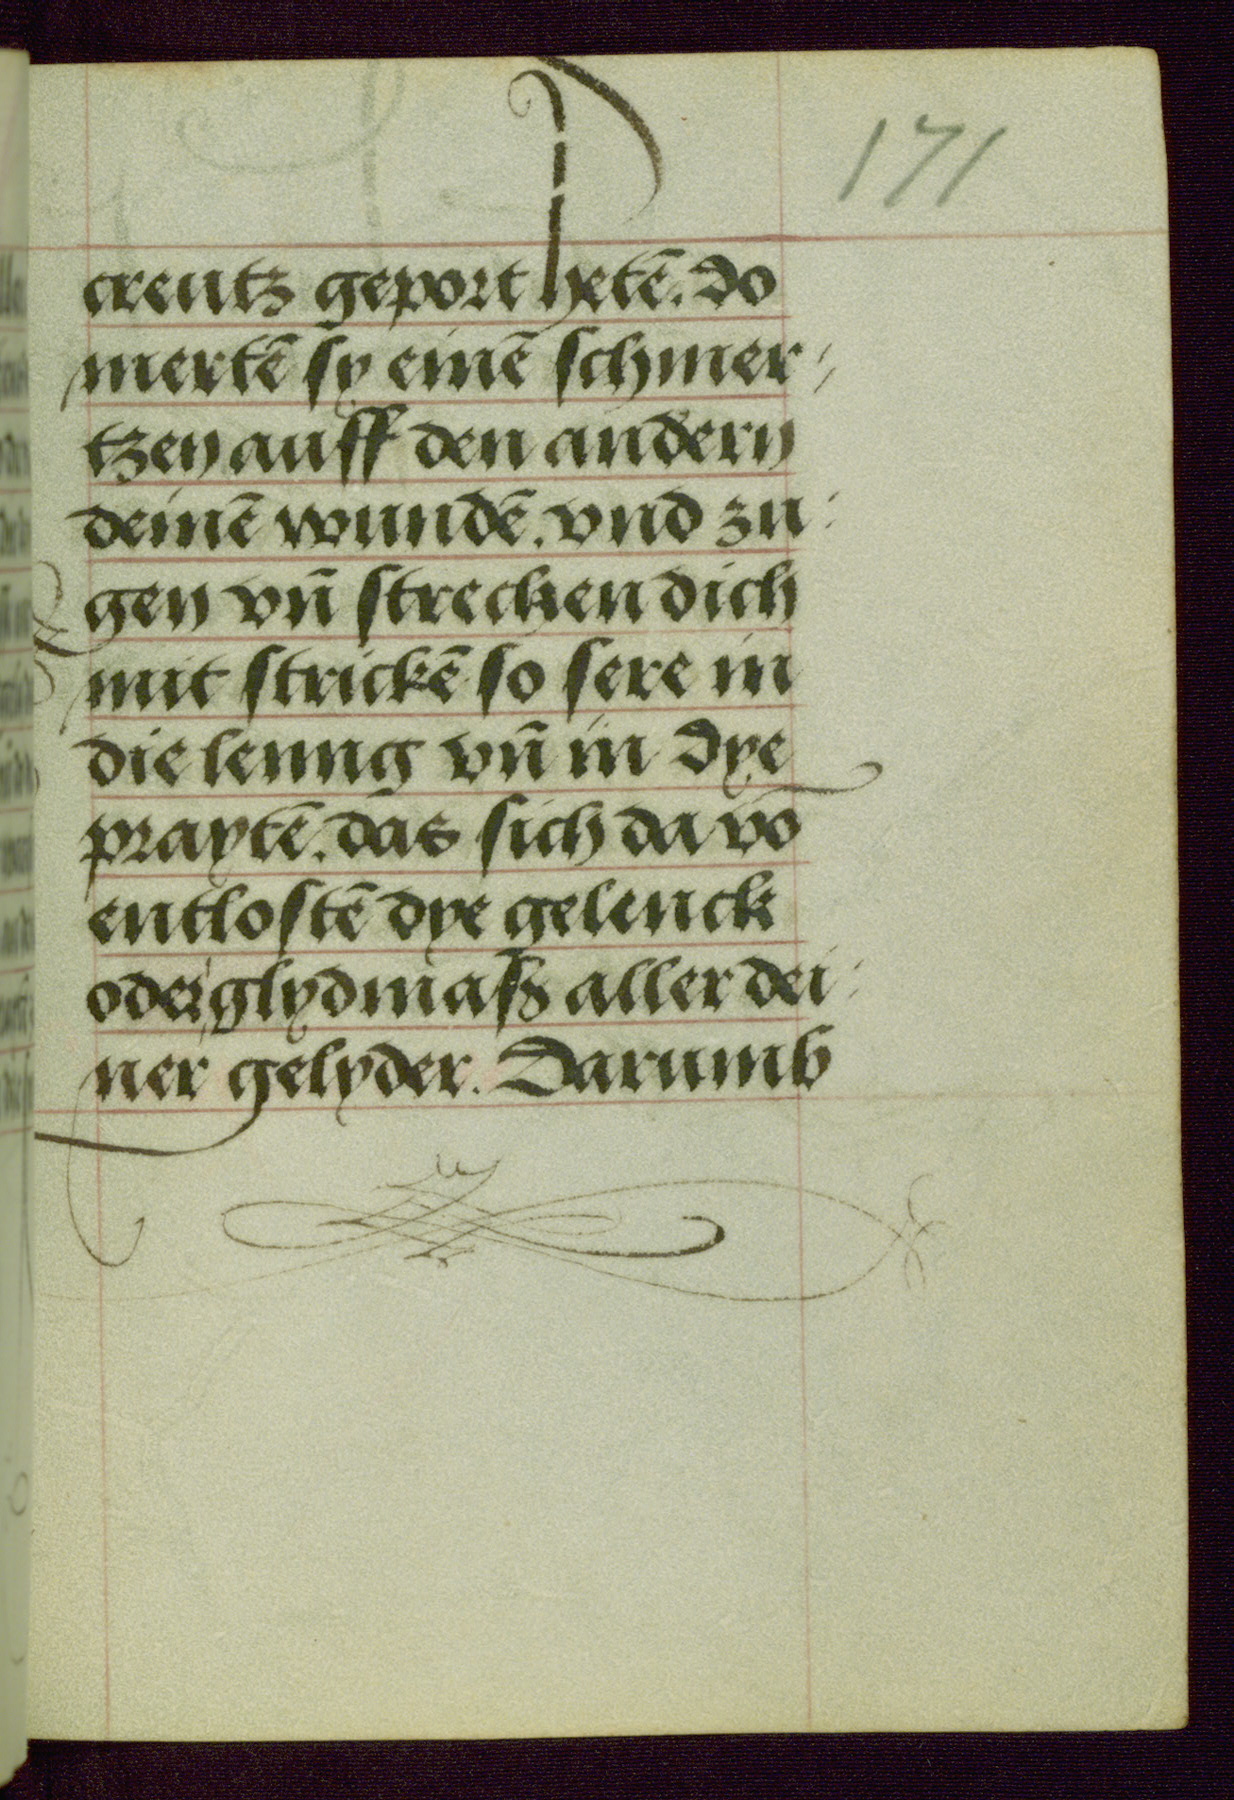 171
creutz geport hetē. Do
mertē sy einē schmer⸗
tzen auff den andern
deinē wundē. vnd zu⸗
gen vn̄ strecken dich
mit strickē so sere in
die lenng vn̄ in dye
praytē. das sich da vō
entlostē dye gelenck
oder glydmaß aller dei⸗
ner gelyder. Darumb